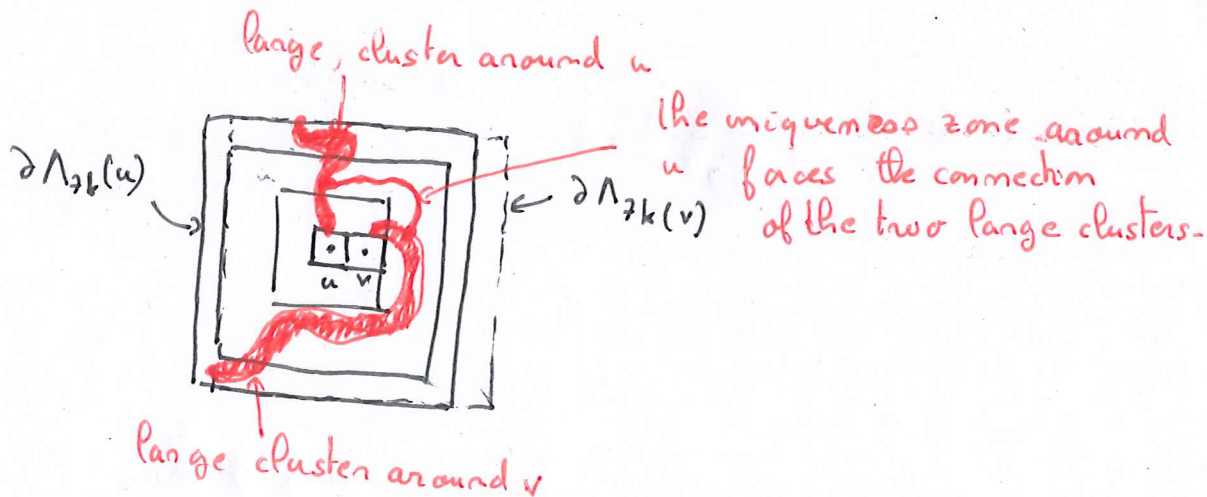 large cluster around u
∂Λ₇ₖ(u)
the uniqueness zone around
u forces the connection
of the two large clusters.
∂Λ₇ₖ(v)
u v
large cluster around v